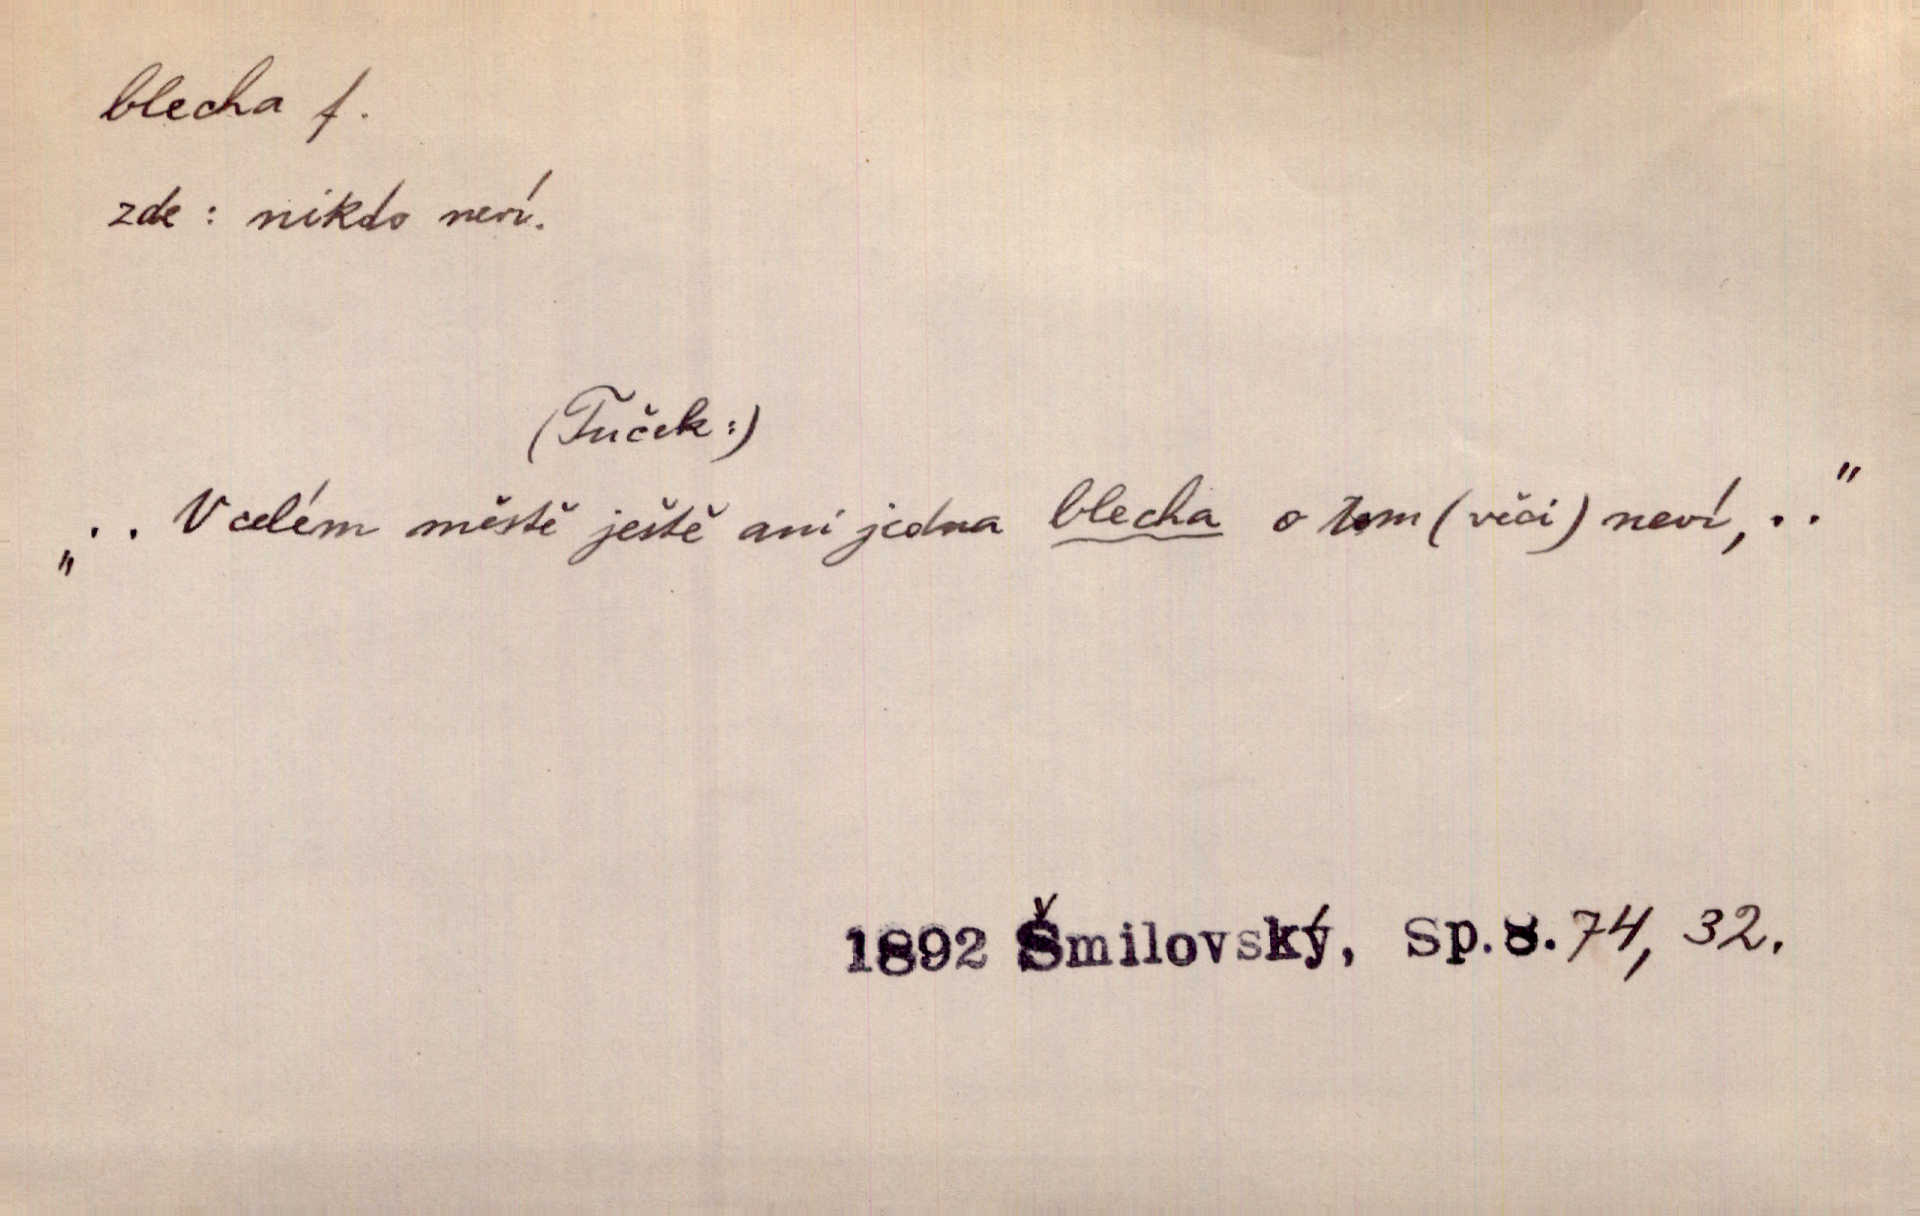 blecha f.
zde : nikdo neví.
(Tuček:)
„.. V celém městě ještě ani jedna blecha o tom (věci) neví, .."
1892 Šmilovský, Sp.8. 74, 32.